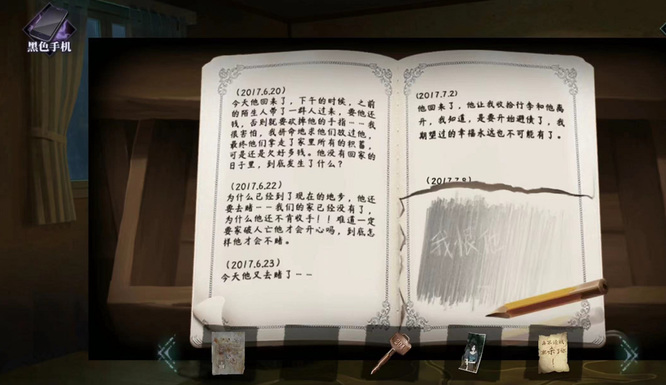 黑色手机
(2017.6.20)
今天他回来了，下午的时候，之前
的陌生人带了一群人过来，要他还
钱，否则就要砍掉他的手指--我
很害怕，我拼命地求他们放过他，
最终他们拿走了家里所有的积蓄，
可是还是欠好多钱。他没有回家的
日子里，到底发生了什么？
(2017.6.22)
为什么已经到了现在的地步，他还
要去赌--我们的家已经没有了，
为什么他还不肯收手！！难道一定
要家破人亡他才会开心吗，到底怎
样他才会不赌。
(2017.6.23)
今天他又去赌了--
(2017.7.2)
他回来了，他让我收拾行李和他离
开，我知道，是要开始避债了，我
期望过的幸福永远也不可能有了。
(2017.7.8)
我恨他